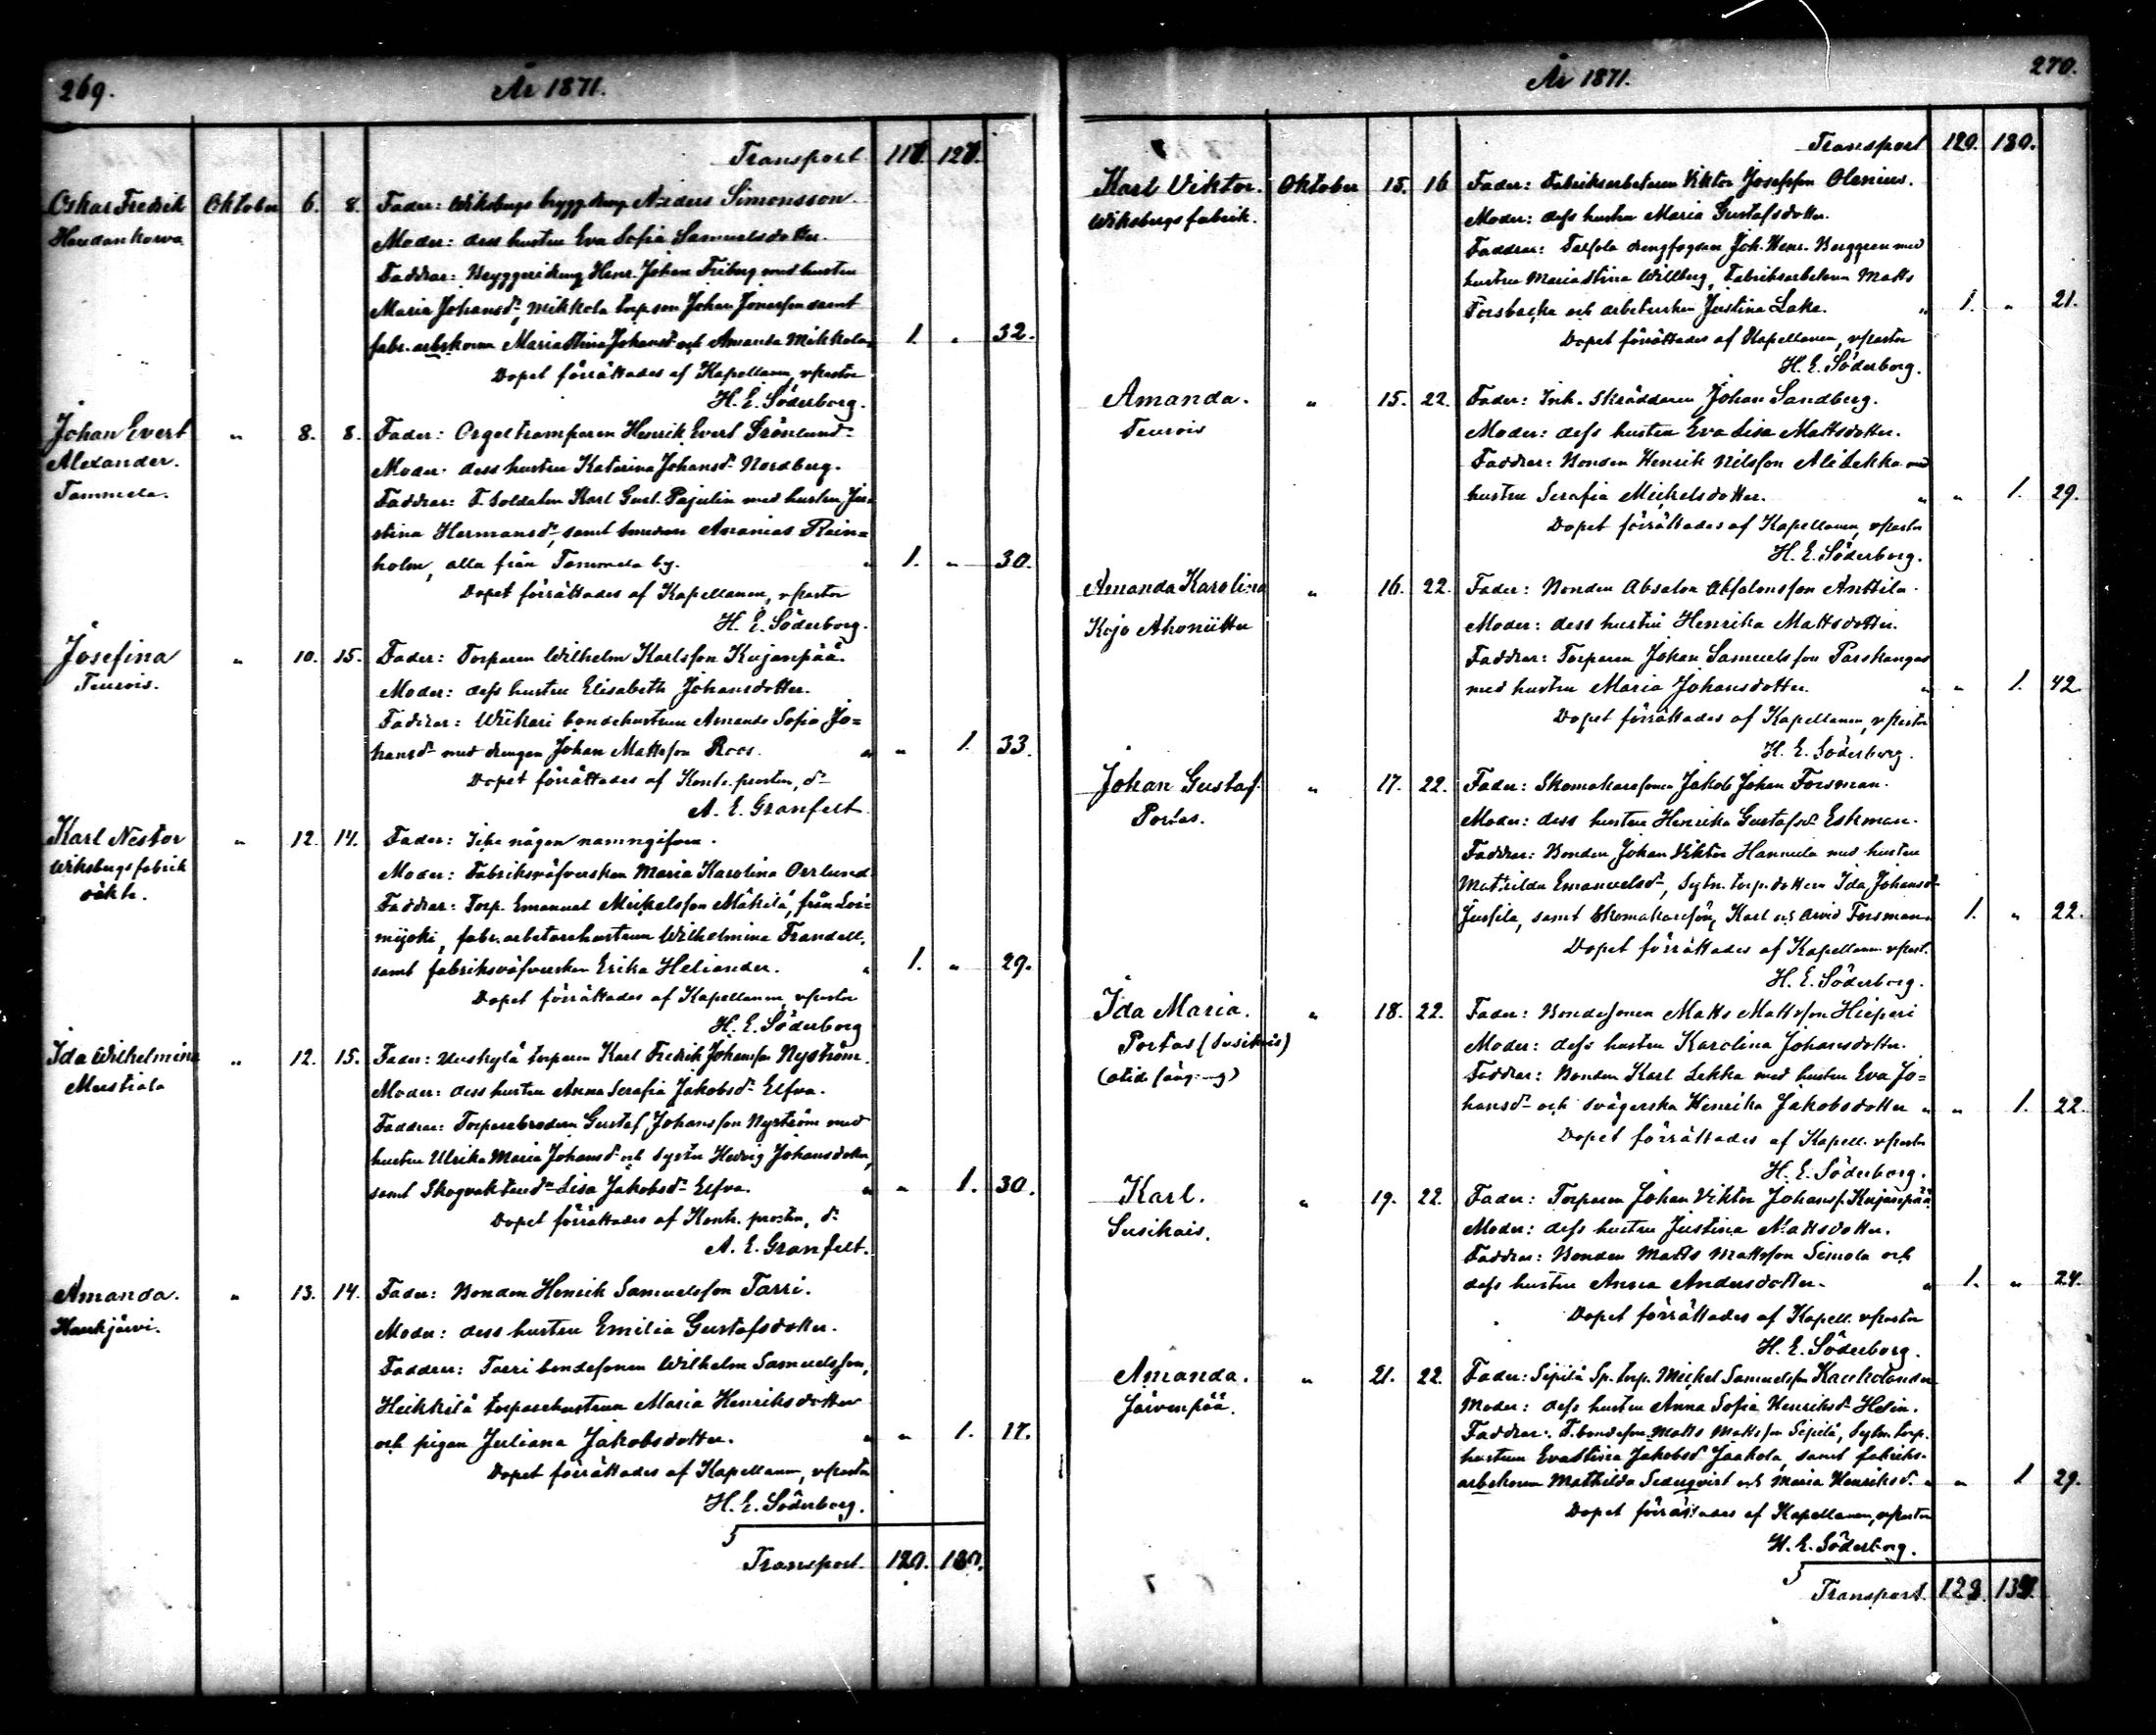 269.
År 1871.
Transport 117. 127.
Oskar Fredrik Oktober 6. 8. Fader: Wiksbergs brygg.dreng Anders Simonsson.
Haudankorva Moder: dess hustru Eva Sofia Samuelsdotter.
Faddrar: Bryggeridreng Henr. Johan Friberg med hustru
Maria Johansd:r, Mikkola torp.son Johan Jonasson samt
fabr. arb.skorna Maria Stina Johansd:r och Amanda Mikkola. 1. „ 32.
Dopet förrättades af Kapellanen, v pastor
H. E. Söderborg.
Johan Evert „ 8. 8. Fader: Orgeltramparen Henrik Evert Grönlund.
Alexander. Moder: dess hustru Katarina Johansd:r Nordberg.
Tammela. Faddrar: F. Soldaten Karl Gust. Pajulin med hustru Ju=
stina Hermansd:r, samt Smeden Ananias Rein=
holm, alla från Tammela by. „ 1. „ 30.
Dopet förrättades af Kapellanen, v pastor
H. E. Söderborg.
Josefina „ 10. 15. Fader: Torparen Wilhelm Karlsson Kujanpää.
Teurois. Moder: dess hustru Elisabeth Johansdotter.
Faddrar: Wiikari bondehustrun Amanda Sofia Jo=
hansd:r med drengen Johan Mattsson Roos. „ „ 1. 33.
Dopet förrättades af Kontr. prosten, d:r
A. E. Granfelt.
Karl Nestor „ 12. 14. Fader: Icke någon namngifven.
Wiksbergs fabrik Moder: Fabriksväfverskan Maria Karolina Oerlund
oäkta. Faddrar: Torp. Emanuel Mickelsson Mäkilä, från Loi=
mijoki, fabr. arbetarehustrun Wilhelmina Frandell,
samt fabriksväfverskan Erika Heliander. „ 1. „ 29.
Dopet förrättades af Kapellanen, v pastor
H. E. Söderborg
Ida Wilhelmina „ 12. 15. Fader: Uuskylä torparen Karl Fredrik Johansson Nyström.
Mustiala Moder: dess hustru Anna Serafia Jakobsd:r Elfva.
Faddrar: Torparebrodern Gustaf Johansson Nyström med
hustru Ulrika Maria Johansd:r och syster Hedvig Johansdotter,
samt Skogvaktared:n Lisa Jakobsd:r Elfva. „ „ 1. 30.
Dopet förrättades af Kontr. prosten, d:r
A. E. Granfelt.
Amanda. „ 13. 14. Fader: Bonden Henrik Samuelsson Tarri.
Kaukjärvi. Moder: dess hustru Emilia Gustafsdotter.
Faddrar: Tarri bondesonen Wilhelm Samuelsson,
Heikkilä torparehustrun Maria Henriksdotter
och pigan Juliana Jakobsdotter. „ „ 1. 17.
Dopet förrättades af Kapellanen, v pastor
H. E. Söderborg.
Transport. 120. 130.
År 1871.
270.
Transport 120. 130.
Karl Viktor. Oktober 15. 16 Fader: Fabriksarbetaren Viktor Josefsson Olenius.
Wiksbergs fabrik. Moder: dess hustru Maria Gustafsdotter.
Faddrar: Talsola drengfogden Joh. Henr. Berggren med
hustru Maria Stina Willberg, Fabriksarbetaren Matts
Forsbacka och arbeterskan Justina Lake. „ 1. „ 21.
Dopet förrättades af Kapellanen, v pastor
H. E. Söderborg.
Amanda. „ 15. 22. Fader: Inh. Skräddaren Johan Sandberg.
Teurois Moder: dess hustru Eva Lisa Mattsdotter.
Faddrar: Bonden Henrik Nilsson Ali Lekka med
hustru Serafia Mickelsdotter. „ „ 1. 29.
Dopet förrättades af Kapellanen, v pastor
H. E. Söderborg.
Amanda Karolina „ 16. 22. Fader: Bonden Absalon Absalonsson Anttila.
Kojo Ahoniittu Moder: dess hustru Henrika Mattsdotter.
Faddrar: Torparen Johan Samuelsson Parskangas
med hustru Maria Johansdotter. „ „ 1. 42.
Dopet förrättades af Kapellanen, v pastor
H. E. Söderborg.
Johan Gustaf. „ 17. 22. Fader: Skomakaresonen Jakob Johan Forsman.
Portas. Moder: dess hustru Henrika Gustafsd:r Eskman.
Faddrar: Bonden Johan Viktor Hannula med hustru
Mathilda Emanuelsd:r, Sytn. torp. dottern Ida Johansd:r
Jussila, samt Skomakaresön. Karl och Arvid Forsman. 1. „ 22.
Dopet förrättades af Kapellanen v past.
H. E. Söderborg.
Ida Maria. „ 18. 22. Fader: Bondesonen Matts Mattsson Hieperi
Portas (Susikais) Moder: dess hustru Karolina Johansdotter.
Faddrar: Bonden Karl Lekka med hustru Eva Jo=
hansd:r och svägerska Henrika Jakobsdotter „ „ 1. 22.
Dopet förrättades af Kapell. v pastor
H. E. Söderborg.
Karl. „ 19. 22. Fader: Torparen Johan Viktor Johanss. Kujanpää
Susikais. Moder: dess hustru Justina Mattsdotter.
Faddrar: Bonden Matts Mattsson Simola och
dess hustru Anna Andersdotter. „ 1. „ 24.
Dopet förrättades af Kapell. v pastor
H. E. Söderborg.
Amanda. „ 21. 22. Fader: Sipilä Sp. torp. Mickel Samuelsson Kaukolander
Järvenpää. Moder: dess hustru Anna Sofia Henriksd:r Helin.
Faddrar: F. bondeson. Matts Mattsson Sipilä, Sytn. torp.
hustrun Eva Stina Jakobsd:r Jaakola, samt fabriks=
arbeterskorna Mathilda Sederqvist och Maria Henriksd:r „ „ 1 29.
Dopet förrättades af Kapellanen, v pastor
H. E. Söderborg.
Transport.